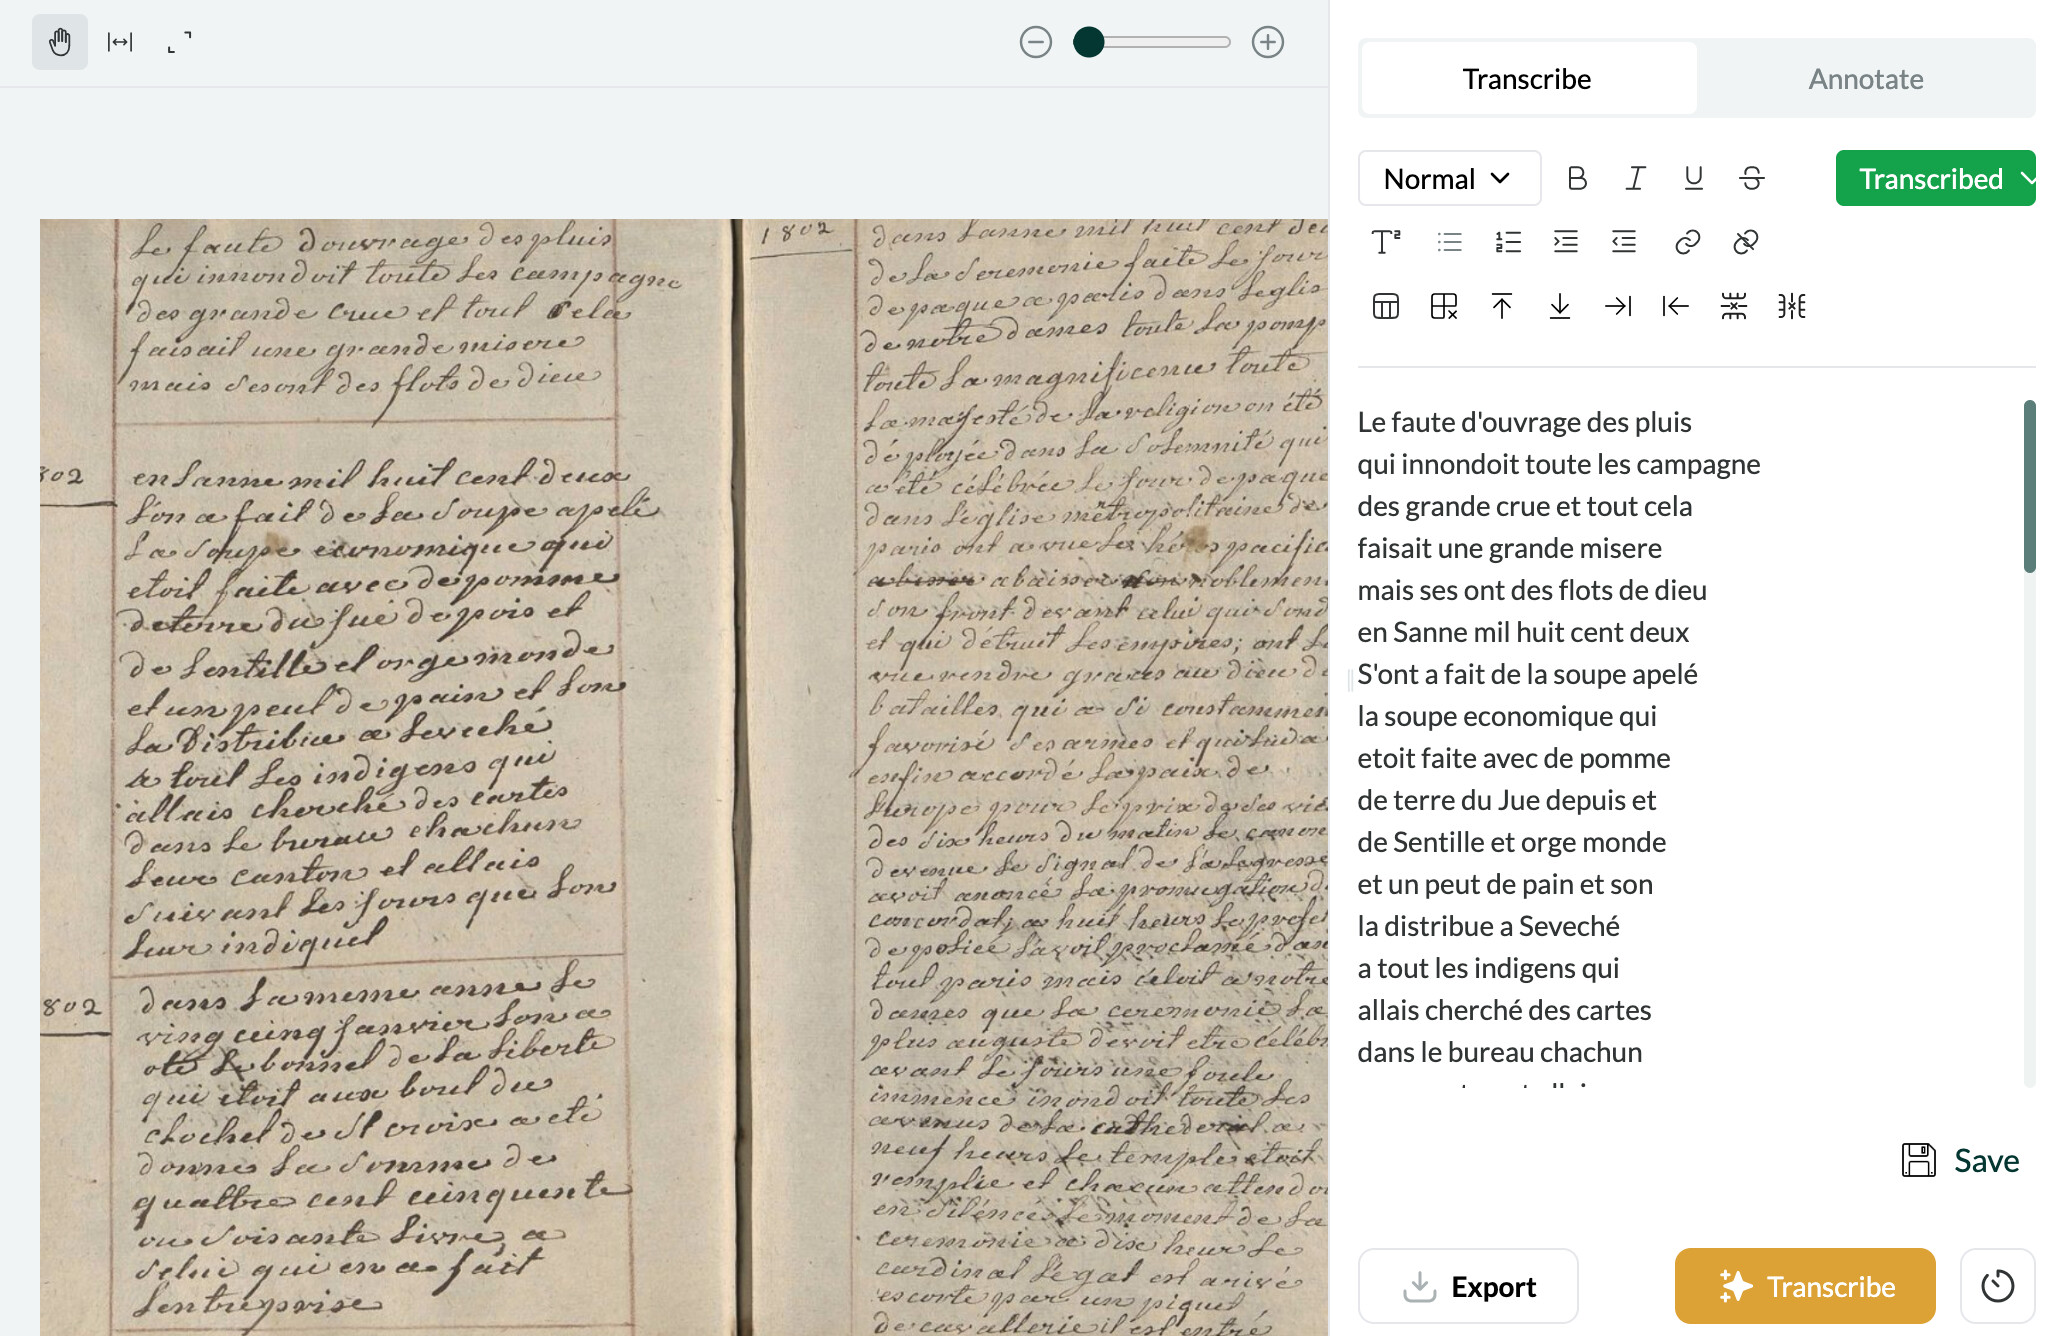 Transcribe
Annotate
Normal
B I U S
Transcribed
T²
Le faute douvrage des pluis
qui innondoit toute les campagne
des grande crue et tout cela
faisait une grande misere
mais sesont des flots de dieu
802
en lanne mil huit cent deux
lon a fait de la soupe apelé
la soupe economique qui
etoit faite avec de pomme
de terre du jui de pois et
de lentille et orge monde
et un peut de pain et lon
la distribue a leveché
a tout les indigens qui
allais cherché des cartes
dans le bureau chachun
leur canton et allais
suivant les jours que lon
leur indiquet
802
dans la meme anne le
ving cuinq janvier lon a
oté le bonnet de la liberte
qui etoit aux bout du
clochet de st croix a eté
donne la somme de
quattre cent cuinquente
ou soisante livre a
selui qui en a fait
lentreprise
1802
dans lanne mil huit cent deu
de la seremonie faite le jour
de paque a paris dans leglis
de notre dames toute la pomp
toute la magnificence toute
la majesté de la religion on été
déployée dans la solemnité qui
a été célébrée le jour de paque
dans l'église métropolitaine de
paris ont a vue le héros pacific
abaisser noblemen
son front devant celui qui fond
et qui détruit les empires; ont l
vue rendre graces au dieu de
batailles qui a si constammen
favorisé ses armes et qui lui a
enfin accordé la paix de
leurope pour le prix de ses vic
des six heurs du matin le canon
devenue le signal de l'alegresse
avoit anoncé la promugation d
concordat; a huit heurs le préfet
de police l'avoit proclamé dan
tout paris mais cétoit a notre
dames que la ceremonie la
plus auguste devoit etre célébr
avant le jours une foule
immence inondoit toute les
avenus de la cathederal a
neuf heurs le temple etoit
remplie et chacun attendoi
en silence le moment de la
ceremonie a dix heur le
cardinal légat est arivé
escorte par un piquet
de cavallerie il est entré
Le faute d'ouvrage des pluis
qui innondoit toute les campagne
des grande crue et tout cela
faisait une grande misere
mais ses ont des flots de dieu
en Sanne mil huit cent deux
S'ont a fait de la soupe apelé
la soupe economique qui
etoit faite avec de pomme
de terre du Jue depuis et
de Sentille et orge monde
et un peut de pain et son
la distribue a Seveché
a tout les indigens qui
allais cherché des cartes
dans le bureau chachun
Save
Export
Transcribe